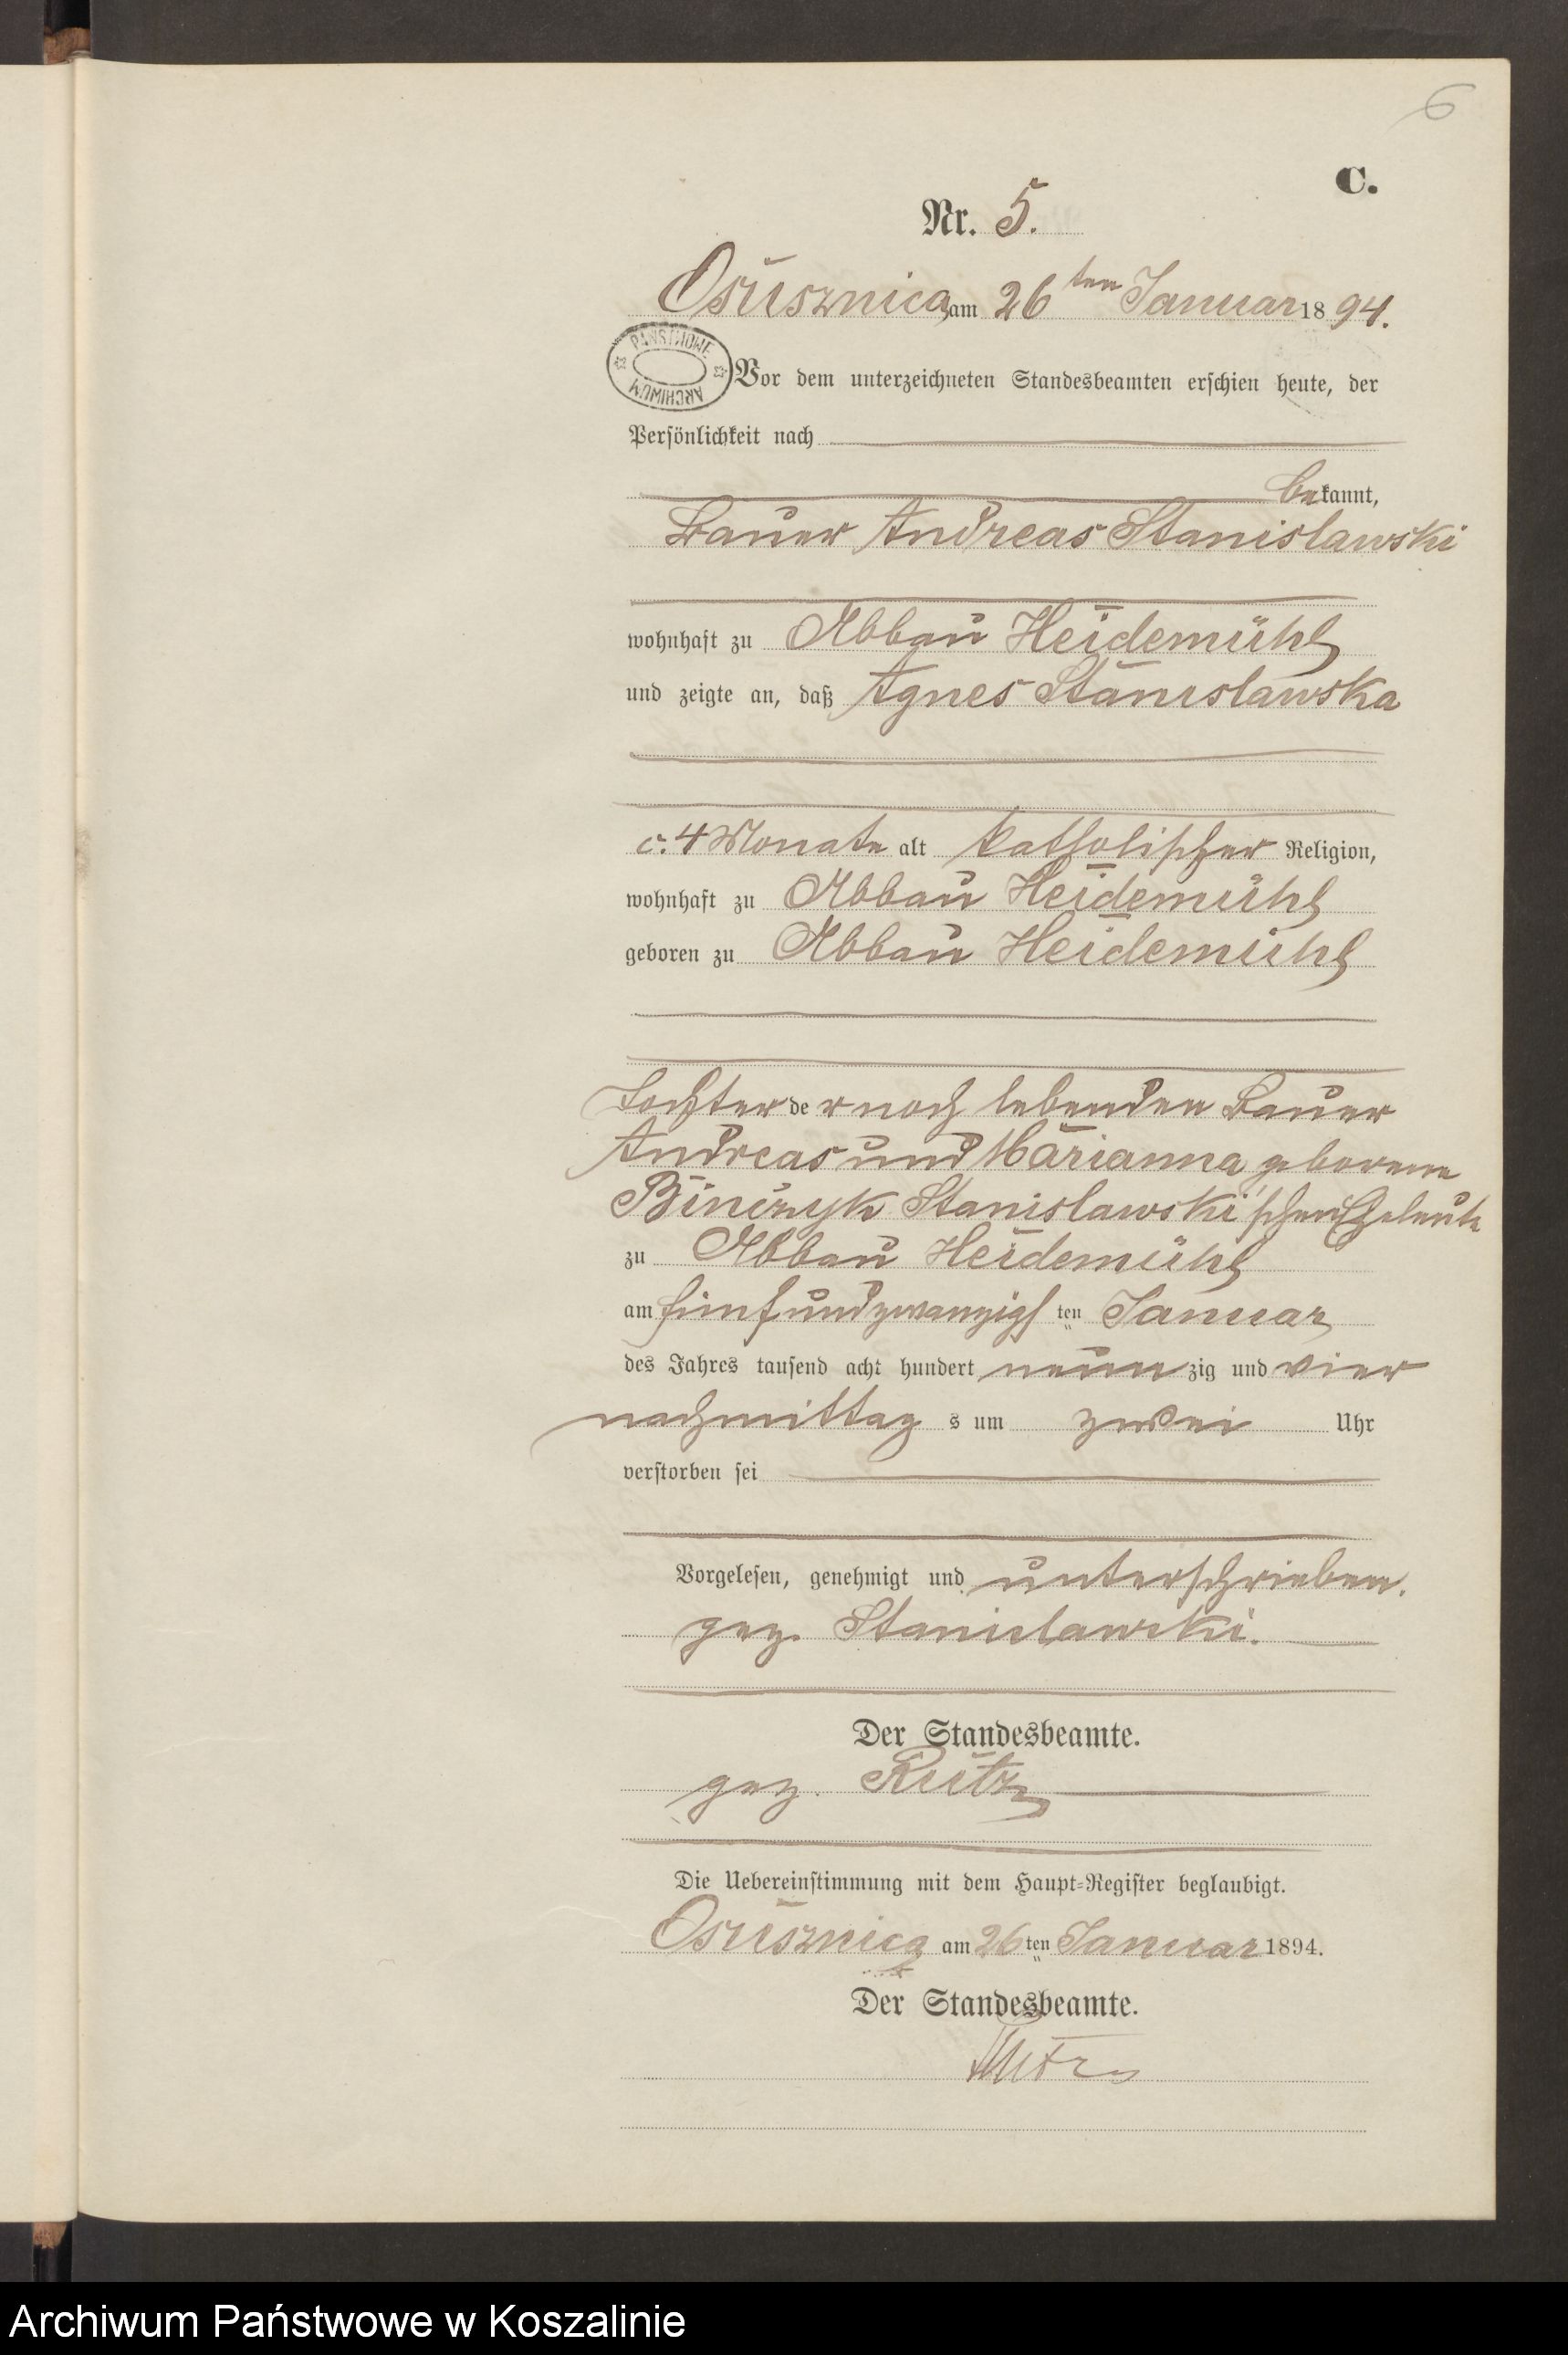 6
C.
Nr. 5.
Osusznica am 26ten Januar 1894.
PAŃSTWOWE
ARCHIWUM
Vor dem unterzeichneten Standesbeamten erschien heute, der
Persönlichkeit nach
bekannt,
Bauer Andreas Stanislawski
wohnhaft zu Abbau Heidemühl
und zeigte an, daß Agnes Stanislawska
c. 4 Monate alt katholischer Religion,
wohnhaft zu Abbau Heidemühl
geboren zu Abbau Heidemühl
Tochter der noch lebenden Bauer
Andreas und Marianna geborene
Binczyk Stanislawski'schen Eheleute
zu Abbau Heidemühl
am fünfundzwanzigsten Januar
des Jahres tausend acht hundert neunzig und vier
nachmittags um zwei Uhr
verstorben sei
Vorgelesen, genehmigt und unterschrieben.
gez. Stanislawski.
Der Standesbeamte.
gez. Rutz
Die Uebereinstimmung mit dem Haupt-Register beglaubigt.
Osusznica am 26ten Januar 1894.
Der Standesbeamte.
Rutz
Archiwum Państwowe w Koszalinie